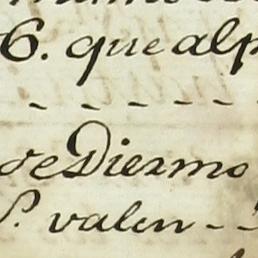 6. que alp
- - - - - -
de Diezmo
P. valen - -